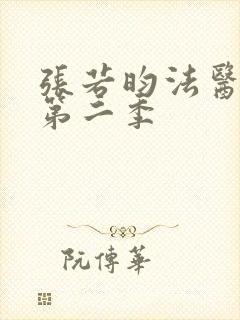 張若昀法醫
第二季
阮傳華